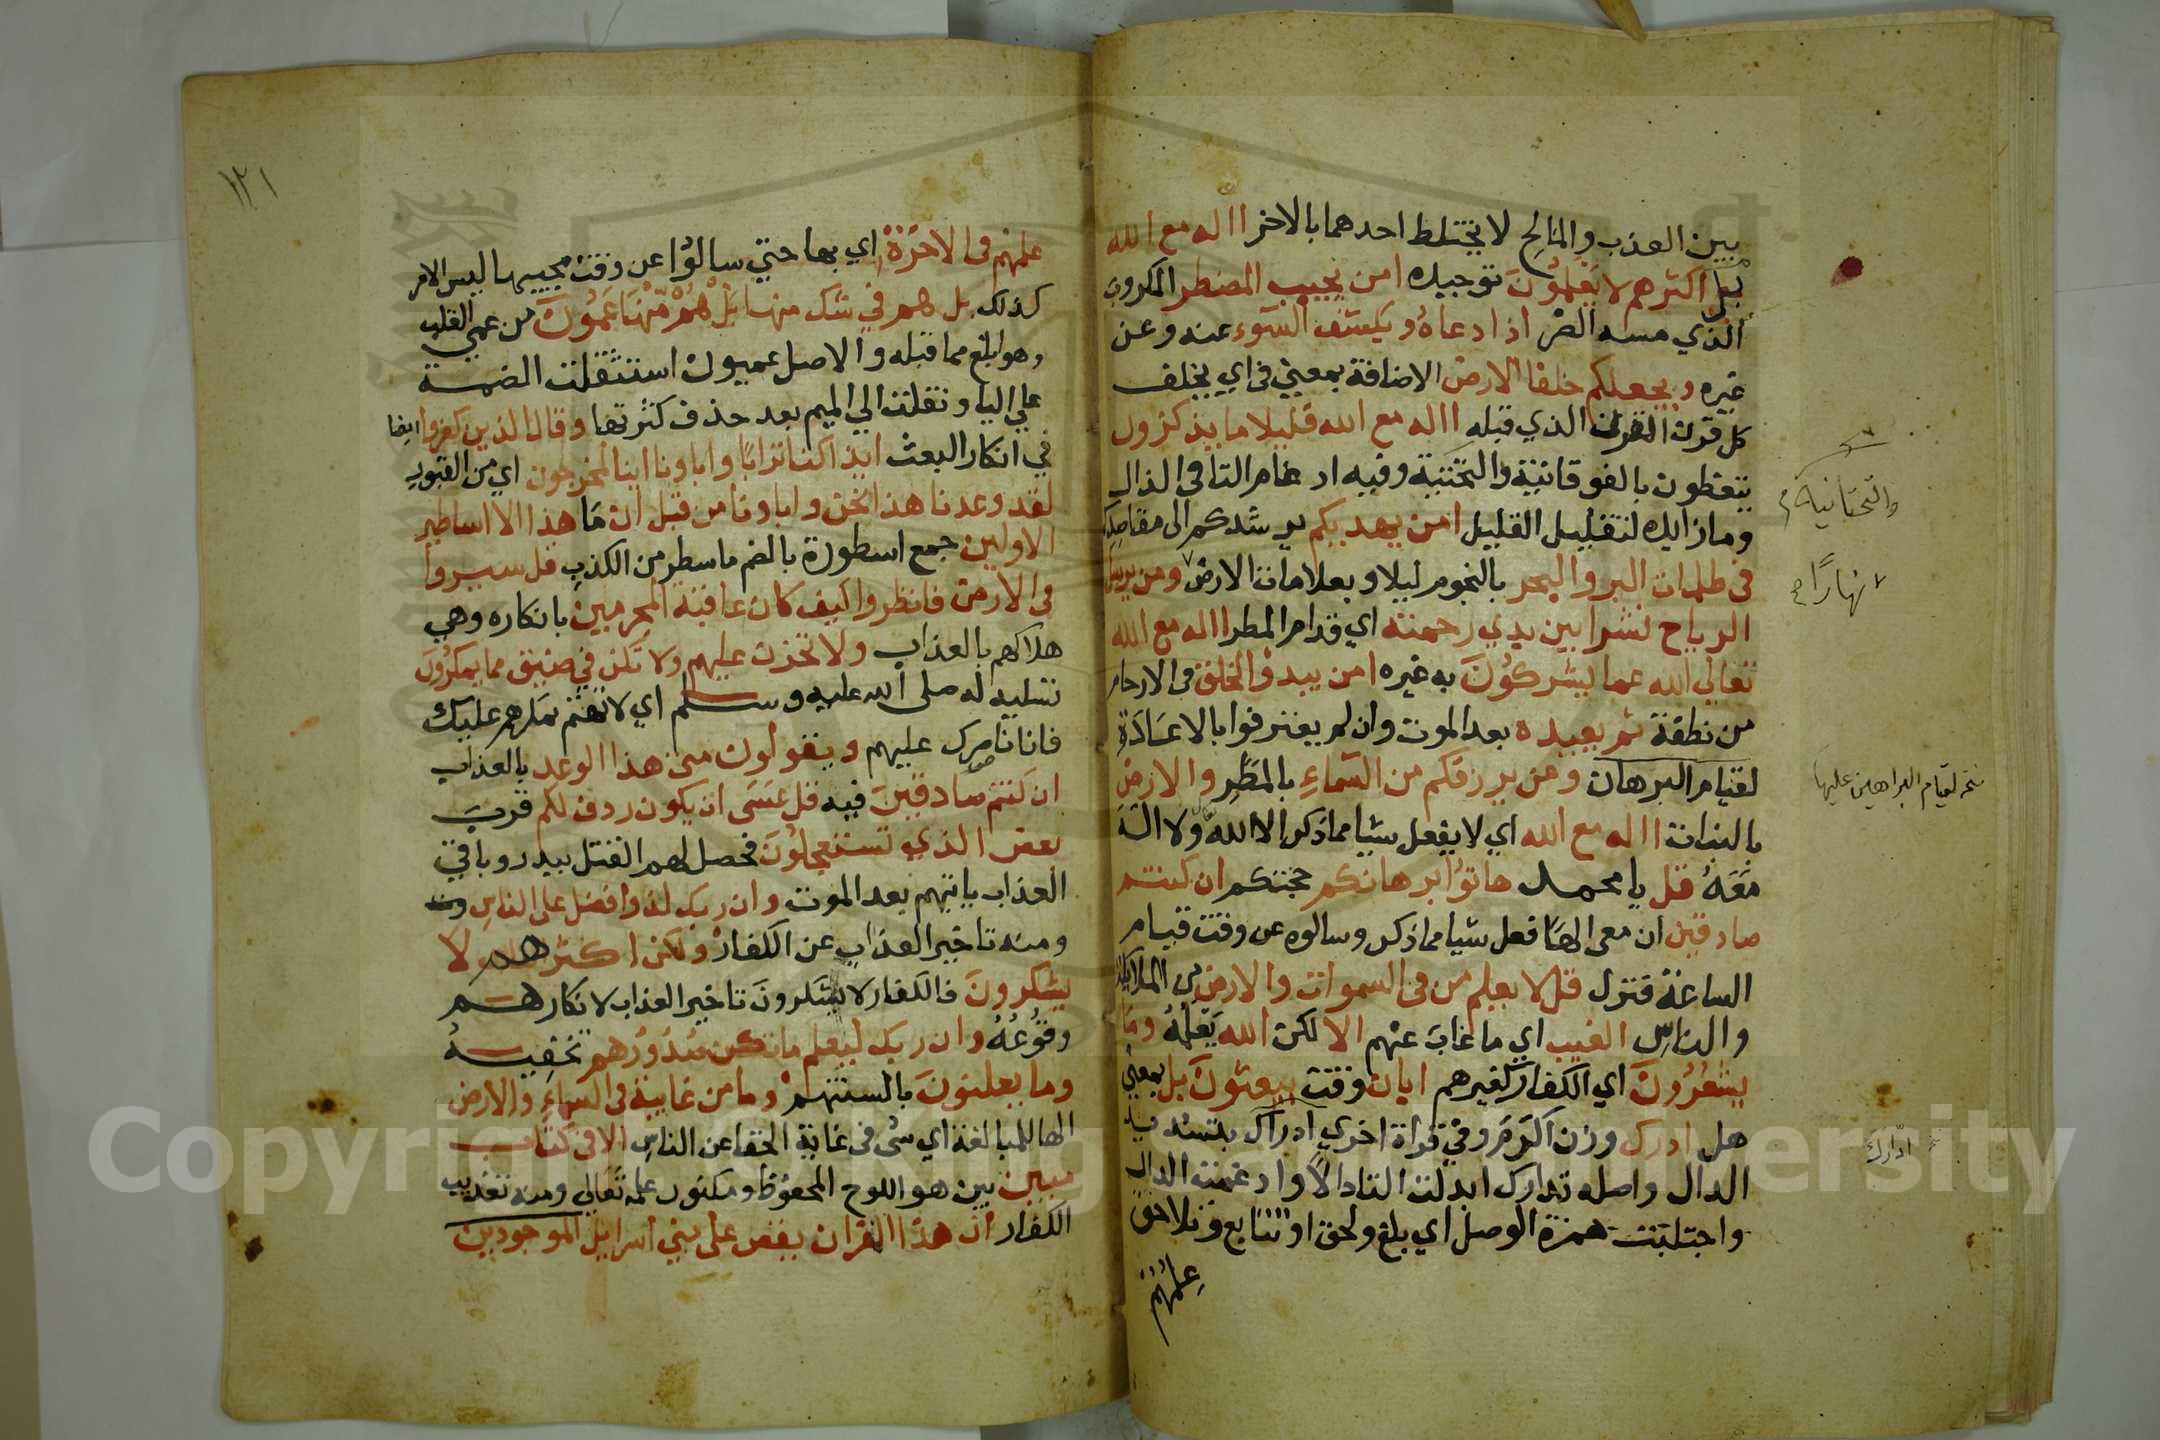 بين العذب والمالح لا يختلط احدهما بالاخر االه مع الله
بل اكثرهم لا يعلمون توحيده امن يجيب المضطر المكروب
الذي مسه الضر اذا دعاه ويكشف السوء عنه وعن
غيره ويجعلكم خلفا الارض الاضافة بمعني في اي يخلف
كل قرن القرن الذي قبله االه مع الله قليلا ما يذكرون
يتعظون بالفوقانية والتحتية وفيه ادغام التا في الذال
وما زايده لتقليل القليل امن يهديكم يرشدكم الى مقاصدكم
في ظلمات البر والبحر بالنجوم ليلا وبعلامات الارض ومن يرسل
الرياح نشرا بين يدي رحمته اي قدام المطر االه مع الله
تعالي الله عما يشركون به غيره امن يبدؤ الخلق في الارحام
من نطفة ثم يعيده بعد الموت وان لم يعترفوا بالاعادة
لقيام البرهان ومن يرزقكم من السماء بالمطر والارض
بالنبات االه مع الله اي لا يفعل شيا مما ذكر الا الله ولا اله
معه قل يا محمد هاتوا برهانكم حجتكم ان كنتم
صادقين ان معي الها فعل شيا مما ذكر وسالوه عن وقت قيام
الساعة فنزل قل لا يعلم من في السموات والارض من الملايكة
والناس الغيب اي ما غاب عنهم الا لكن الله يعلمه وما
يشعرون اي الكفار كغيرهم ايان وقت يبعثون بل بمعني
هل ادرك وزن اكرم وفي قراة اخري ادراك بتشديد
الدال واصله تدارك ابدلت التا دالا وادغمت الدال
واجتلبت همزة الوصل اي بلغ ولحق او تتابع وتلاحق
علمهم
والتحتانية
نهارًا
نسخه لقيام البراهين عليها
ادّارك
١٢١
علمهم في الاخرة اي بها حتي سالوا عن وقت مجييها ليس الامر
كذلك بل هم في شك منها بل هم منها عمون من عمي القلب
وهو ابلغ مما قبله والاصل عميون استثقلت الضمة
علي اليا ونقلت الي الميم بعد حذف كثرتها وقال الذين كفروا ايضا
في انكار البعث ايذا كنا ترابا واباونا اينا لمخرجون اي من القبور
لقد وعدنا هذا نحن واباونا من قبل ان ما هذا الا اساطير
الاولين جمع اسطورة بالضم ما سطر من الكذب قل سيروا
في الارض فانظروا كيف كان عاقبة المجرمين بانكاره وهي
هلاكهم بالعذاب ولا تحزن عليهم ولا تكن في ضيق مما يمكرون
تسلية له صلى الله عليه وسلم اي لا تهتم بمكرهم عليك
فانا ناصرك عليهم ويقولون متى هذا الوعد بالعذاب
ان كنتم صادقين فيه قل عسى ان يكون ردف لكم قرب
بعض الذي تستعجلون فحصل لهم القتل ببدر وباقي
العذاب ياتيهم بعد الموت وان ربك لذو فضل على الناس
ومنه تاخير العذاب عن الكفار ولكن اكثرهم لا
يشكرون فالكفار لا يشكرون تاخير العذاب لانكارهم
وقوعه وان ربك ليعلم ما تكن صدورهم تخفيه
وما يعلنون بالسنتهم وما من غايبة في السماء والارض
الها للمبالغة اي شى في غاية الخفا عن الناس الا في كتاب
مبين بين هو اللوح المحفوظ ومكنون علمه تعالي ومنه تعذيب
الكفار ان هذا القران يقص على بني اسرايل الموجودين
Copyright © King Saud University